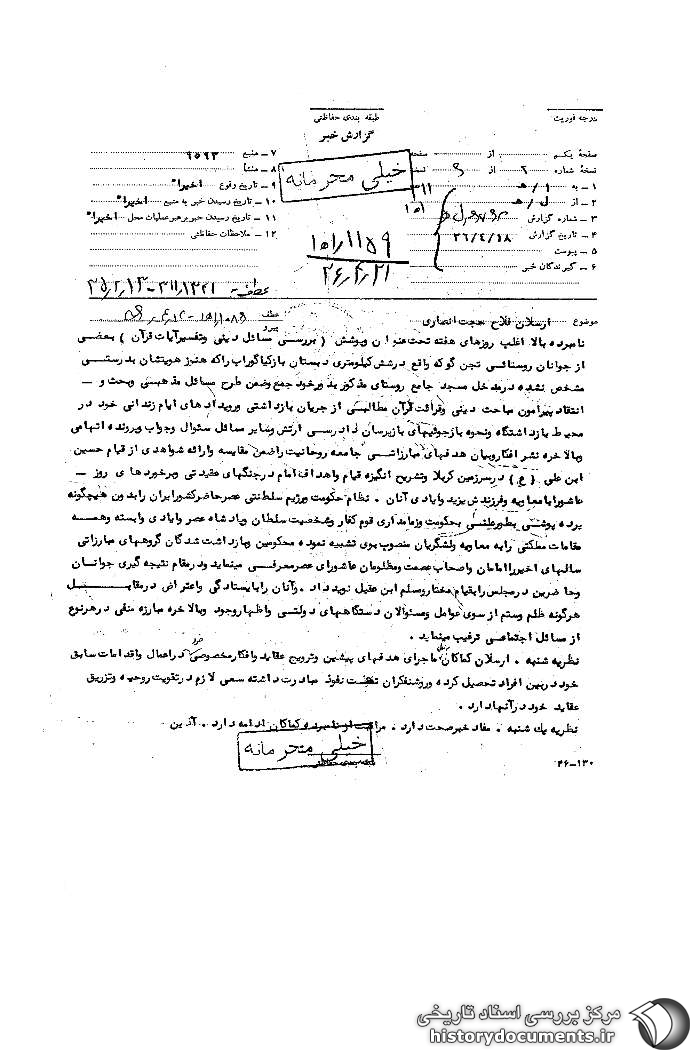 درجه فوریت
طبقه بندی حفاظتی
گزارش خبر
صفحهٔ یکم از صفحه
نسخهٔ شماره ۲ از ۶ نسخه
۱ ـ به ۱ / هـ ۳۱۱
۲ ـ از ل / هـ
۳ ـ شماره گزارش
۴ ـ تاریخ گزارش ۳۶/۴/۱۸
۵ ـ پیوست
۶ ـ گیرندگان خبر
۷ ـ منبع ۹۵۹۳
۸ ـ منشأ
۹ ـ تاریخ وقوع اخیرا"
۱۰ ـ تاریخ رسیدن خبر به منبع اخیرا"
۱۱ ـ تاریخ رسیدن خبر برهبر عملیات محل اخیرا"
۱۲ ـ ملاحظات حفاظتی
خیلی محرمانه
۳۶/۴/۲۱
عطف به
موضوع ارسلان فلاح حجت انصاری عطف پیرو
نامبرده بالا اغلب روزهای هفته تحت عنوان وپوشش ( بررسی مسائل دینی وتفسیرآیات قرآن ) بعضی
از جوانان روستائی تجن گوکه واقع درشش کیلومتری دبستان بازکیاگوراب راکه هنوز هویتشان بدرستی
مشخص نشده درمدخل مسجد جامع روستای مذکور بدور خود جمع وضمن طرح مسائل مذهبی وبحث و ـ
انتقاد پیرامون مباحث دینی وقرائت قرآن مطالبی از جریان بازداشتی ورویدادهای ایام زندانی خود در
محیط بازداشتگاه ونحوه بازجوئیهای بازپرسان دادرسی ارتش وسایر مسائل سئوال وجواب وپرونده اتهامی
وبالاخره نشر افکاروبیان هدفهای مبارزاتی جامعه روحانیت راضمن مقایسه وارائه شواهدی از قیام حسین
ابن علی ( ع ) درسرزمین کربلا وتشریح انگیزه قیام واهداف امام درجنگهای عقیدتی وبرخوردهای روز ـ
عاشورا بامعاویه وفرزندش یزید وایادی آنان . نظام حکومت ورژیم سلطنتی عصرحاضرکشورایران رابدون هیچگونه
پرده پوشی بطورعلنی بحکومت وزمامداری قوم کفار وشخصیت سلطان وپادشاه عصر وایادی وابسته وهمه
مقامات مملکتی رابه معاویه ولشگریان منصوب بوی تشبیه نموده محکومین وبازداشت شدگان گروههای مبارزاتی
سالهای اخیرراامامان واصحاب عصمت ومظلومان عاشورای عصرمعرفی مینماید ودرمقام نتیجه گیری جوانان
وحاضرین درمجلس رابقیام مختارومسلم ابن عقیل نویدداد . وآنان راباایستادگی واعتراض درمقابل
هرگونه ظلم وستم از سوی عوامل ومسئولان دستگاههای دولتی واظهاروجود وبالاخره مبارزه منفی درهرنوع
از مسائل اجتماعی ترغیب مینماید .
نظریه شنبه . ارسلان کماکان ماجرای هدفهای پیشین وترویج عقاید وافکارمخصوص خود دراعمال واقدامات سابق
خود دربین افراد تحصیل کرده وروشنفکران تحت نفوذ مبادرت داشته سعی لازم درتقویت روحیه وتزریق
عقاید خود درآنهادارد .
نظریه یك شنبه . مفاد خبرصحت دارد . مراقبت ازنامبرده کماکان ادامه دارد . آذین
خیلی محرمانه
۳۶-۱۳۰
مرکز بررسی اسناد تاریخی
historydocuments.ir